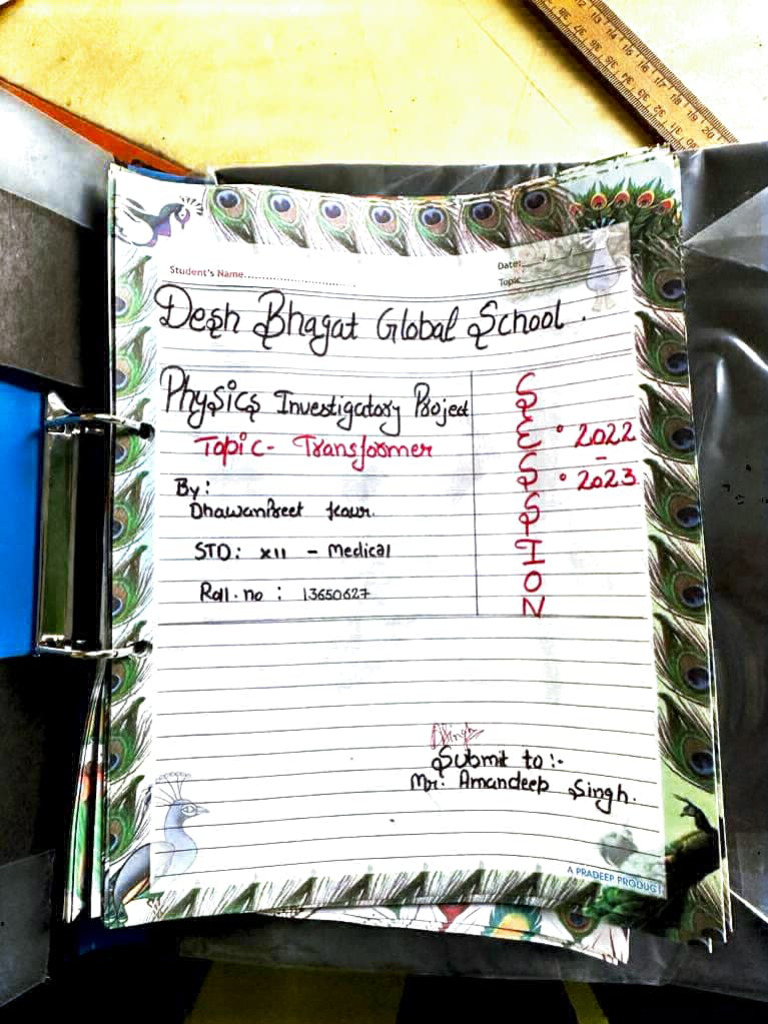 Student's Name
Date:
Topic
Desh Bhagat Global School.
Physics Investigatory Project
Topic- Transformer
SESSION
2022
-
2023
By:
Dhawanpreet kaur.
STD: XII - Medical
Roll.no : 13650627
Submit to:-
Mr: Amandeep Singh.
A PRADEEP PRODUCT